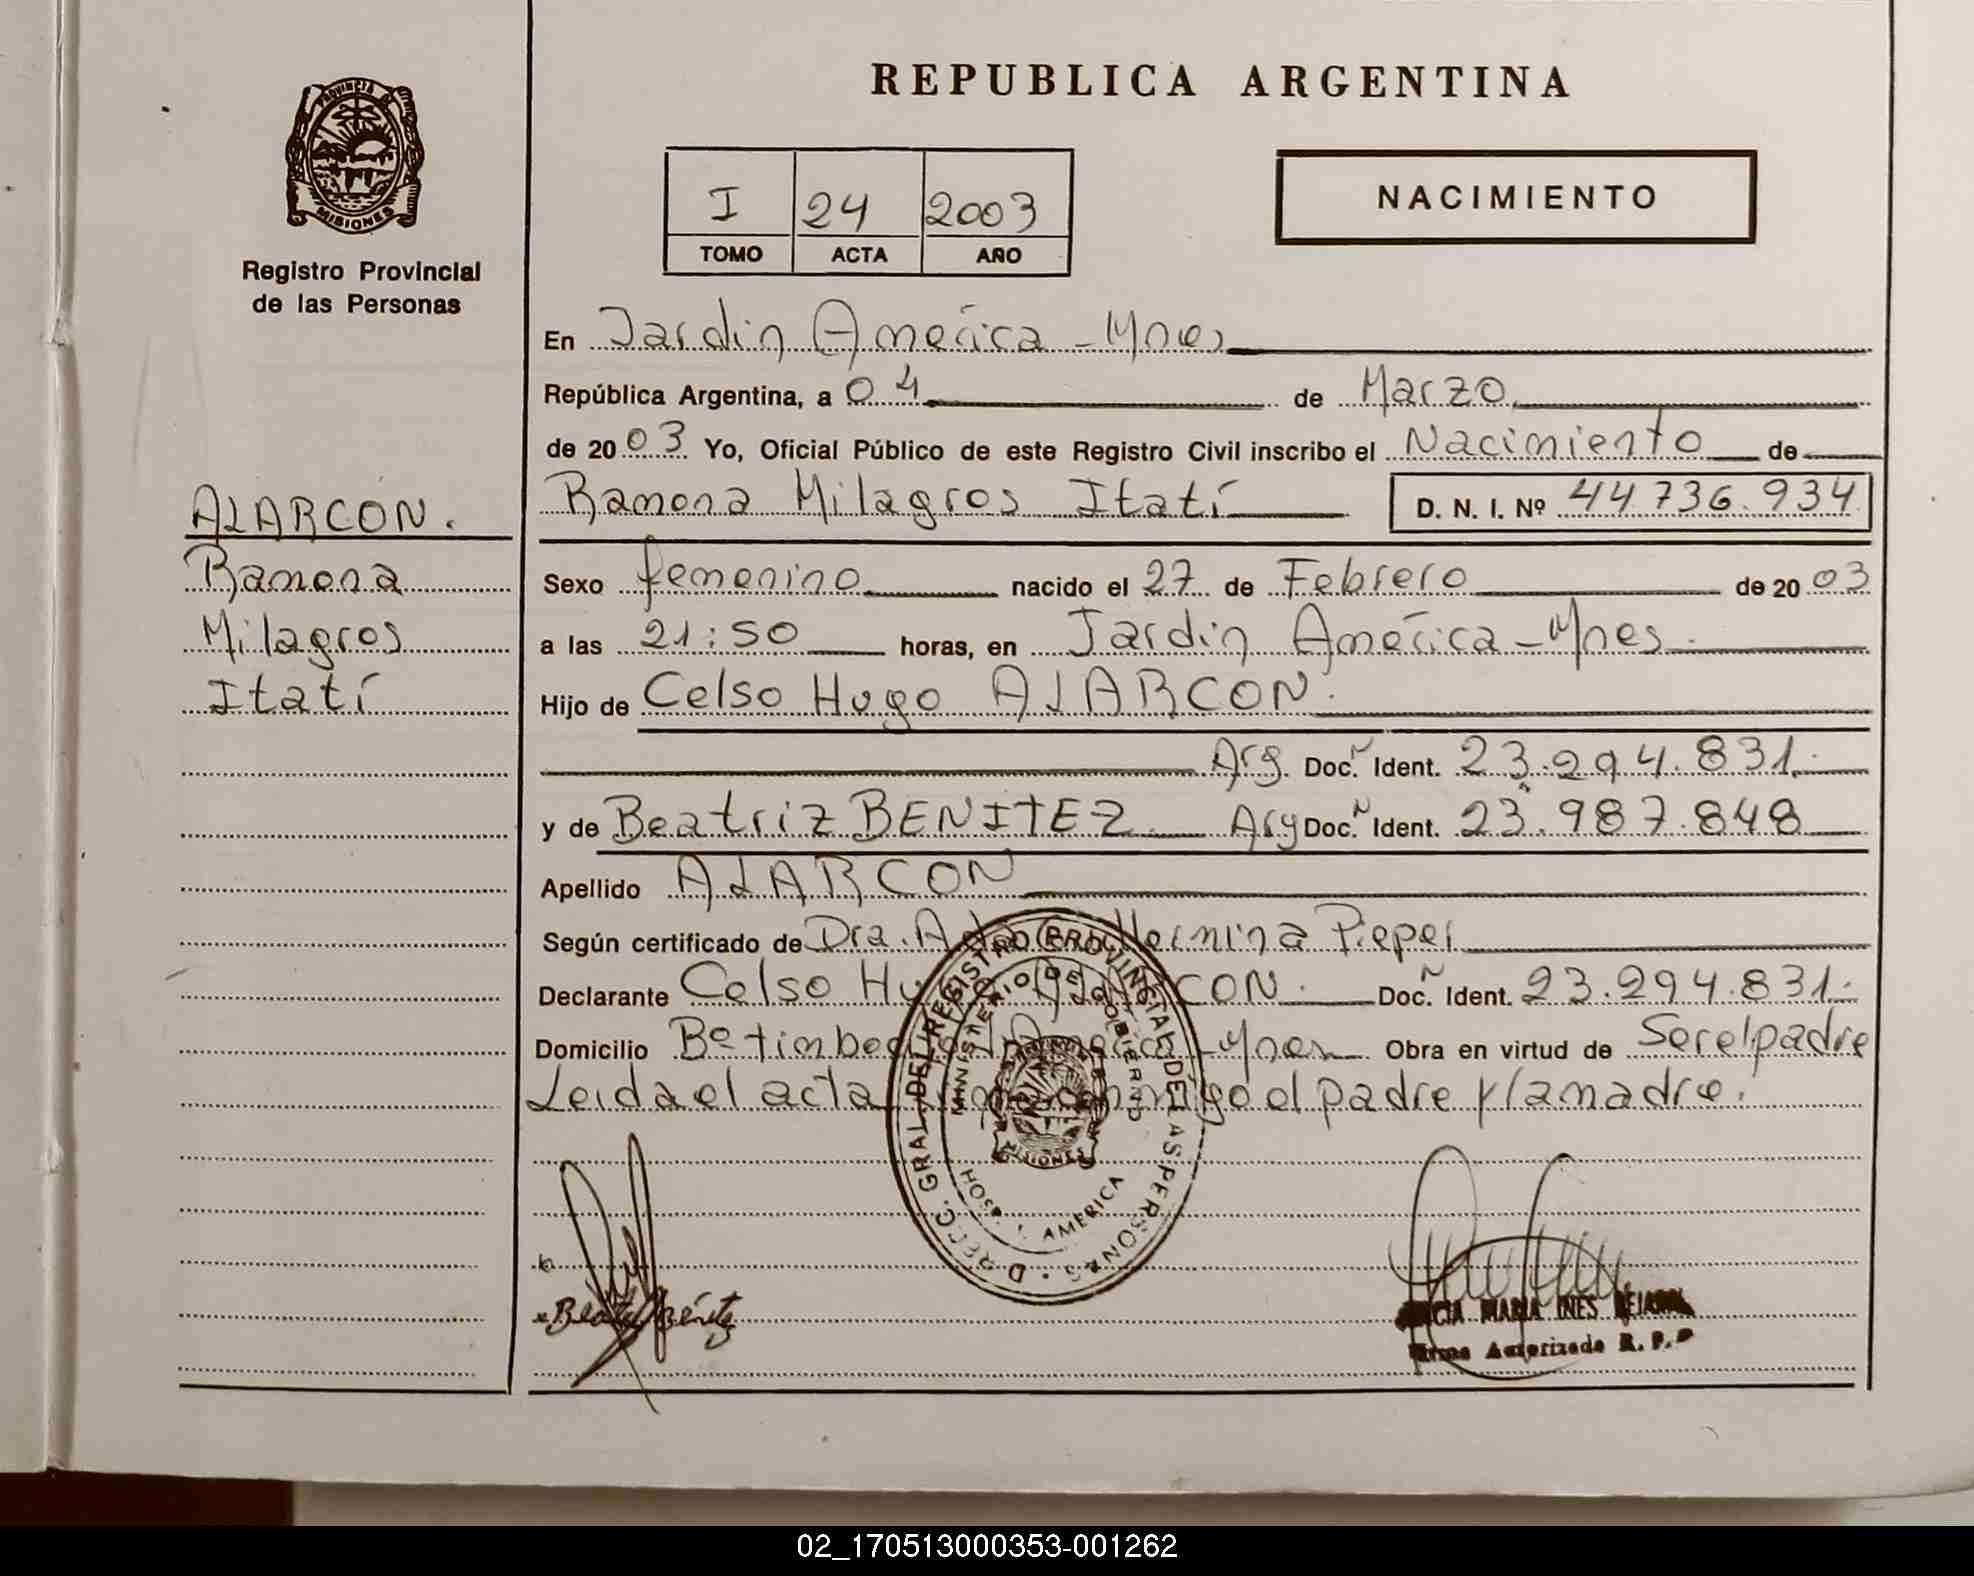 PROVINCIA DE
MISIONES
Registro Provincial
de las Personas
REPUBLICA ARGENTINA
I 24 2003
TOMO ACTA AÑO
NACIMIENTO
En Jardin América - Mnes
República Argentina, a 04 de Marzo
de 2003 Yo, Oficial Público de este Registro Civil inscribo el Nacimiento de
Ramona Milagros Itatí D. N. I. Nº 44 736.934
ALARCON.
Ramona
Milagros
Itatí
Sexo femenino nacido el 27 de Febrero de 2003
a las 21:50 horas, en Jardin América - Mnes.
Hijo de Celso Hugo ALARCON.
Arg. Doc. Ident. 23.294.831.
y de Beatriz BENITEZ Arg Doc. Ident. 23.987.848
Apellido ALARCON
Según certificado de Dra. Hermina Pieper
Declarante Celso Hugo ALARCON. Doc. Ident. 23.294.831.
Domicilio Bº timbo América - Mnes Obra en virtud de Ser el padre
Leida el acta conmigo el padre y la madre.
DIRECC. GRAL. DEL REGISTRO PROVINCIAL DE LAS PERSONAS
MINISTERIO DE GOBIERNO
MISIONES
HOSP. J. AMERICA
Beatriz Benitez
MARIA INES
Firma Autorizada R. P. P
02_170513000353-001262